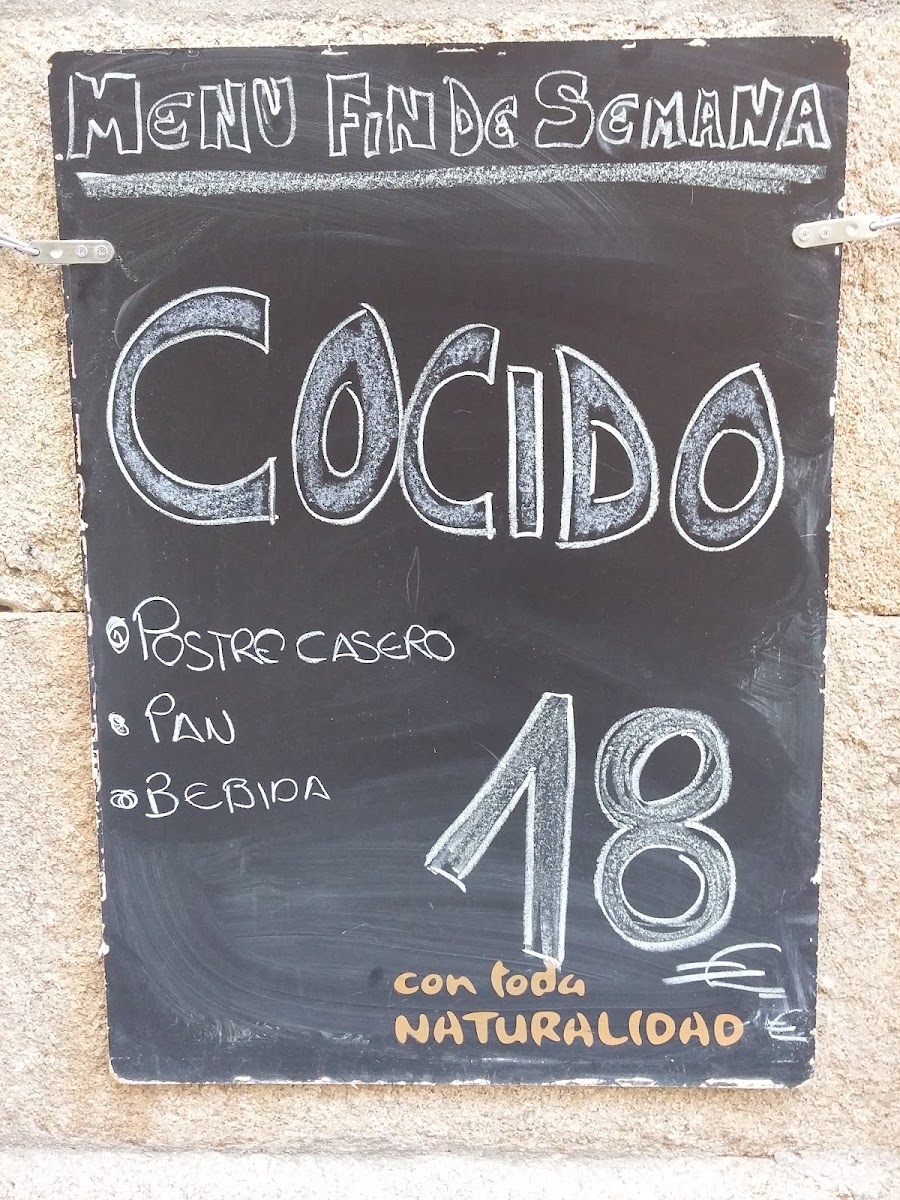 MENU FIN DE SEMANA
COCIDO
POSTRE CASERO
PAN
BEBIDA
18 €
con toda
NATURALIDAD